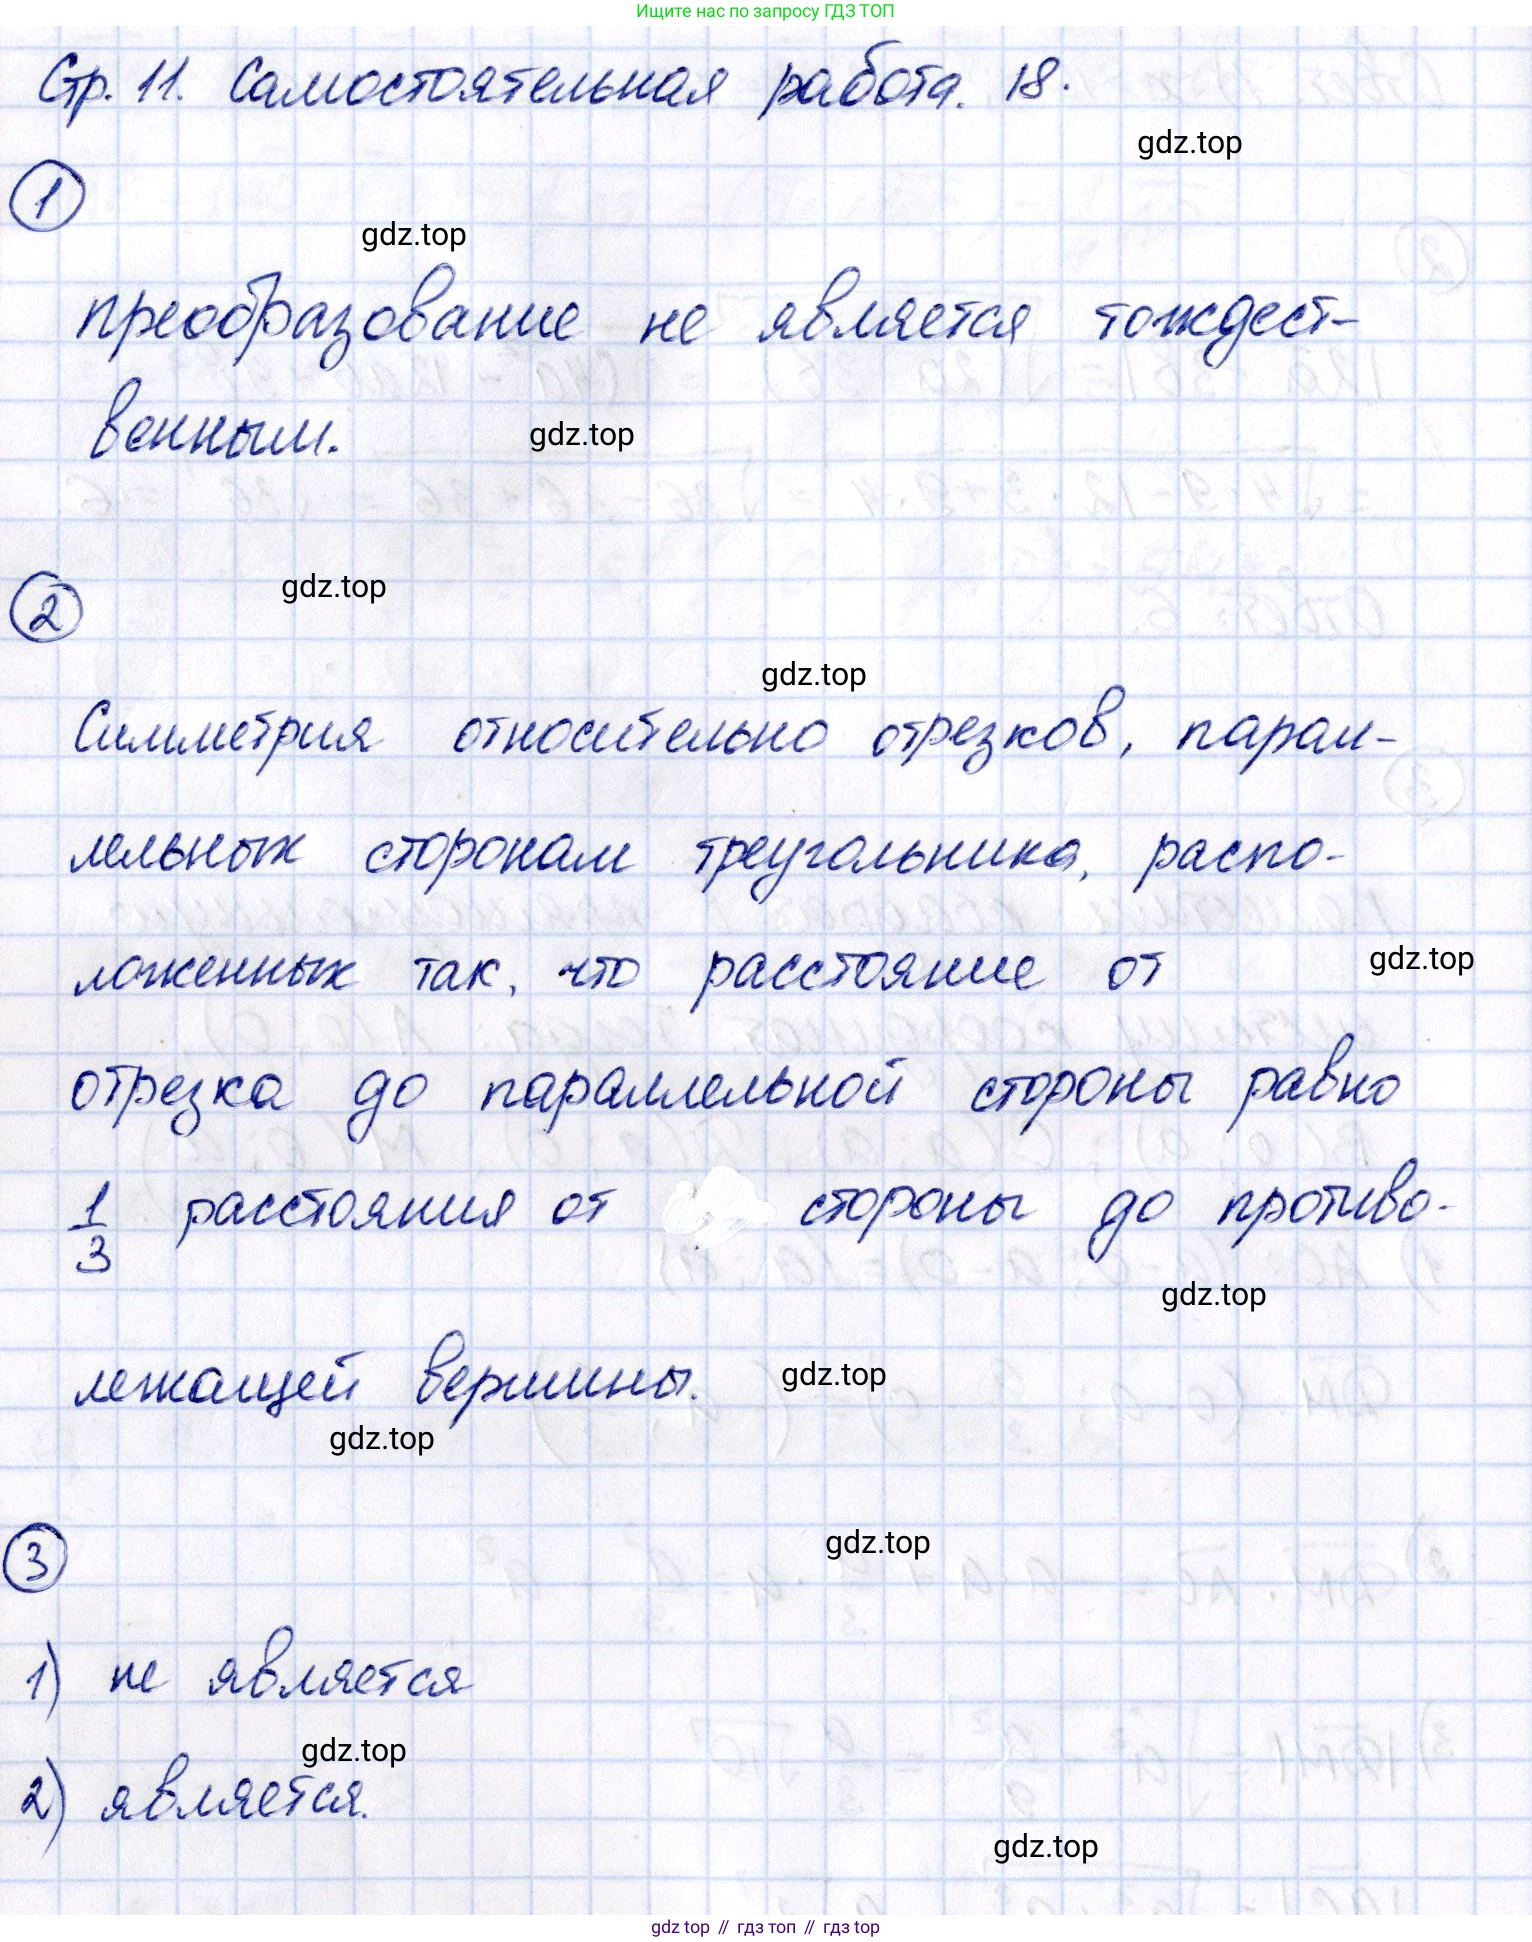 Ищите нас по запросу ГДЗ ТОП
Стр. 11. Самостоятельная работа. 18.
gdz.top
1
gdz.top
преобразование не является тождест-
венным.
gdz.top
2
gdz.top
gdz.top
Симметрия относительно отрезков, парал-
лельных сторонам треугольника, распо-
ложенных так, что расстояние от
gdz.top
отрезка до параллельной стороны равно
1/3 расстояния от стороны до противо-
gdz.top
лежащей вершины.
gdz.top
gdz.top
3
gdz.top
1) не является
gdz.top
2) является.
gdz.top
gdz top // гдз топ // гдз top